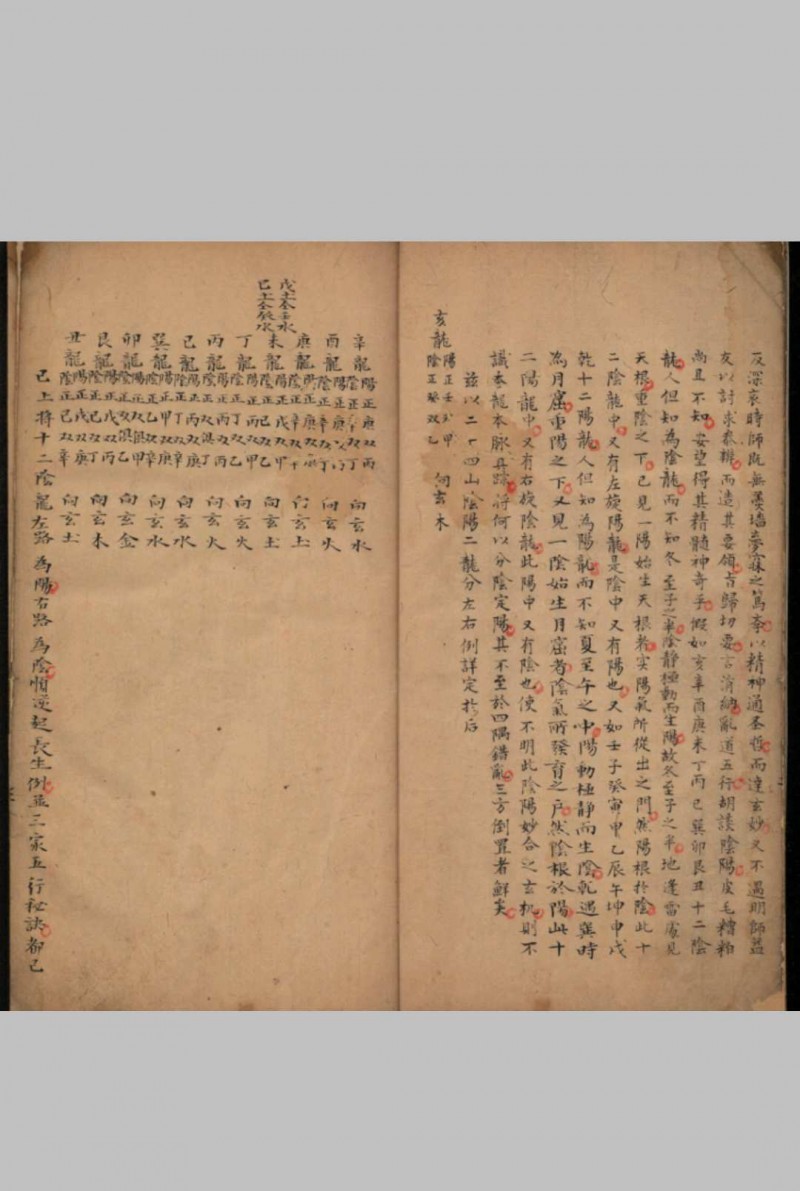 反深哀時師既無羹墻夢寐之篤夲以精神通圣哲而達玄妙又不遇明師益
友以討求叅機而造其要領吉歸切要言消納亂道五行胡談陰陽皮毛糟粕
尚且不知安望得其精髓神奇乎假如亥辛酉庚未丁丙巳巽卯艮丑十二陰
龍人但知為陰龍而不知冬至子之半陰静極動而生陽故冬至子之半地逢雷處見
天根重陰之下已見一陽始生天根者实陽氣所從出之門然陽根於陰此十
二陰龍中又有左旋陽龍是陰中又有陽也又如壬子癸寅甲乙辰午坤申戌
乾十二陽龍人但知為陽龍而不知夏至午之中陽動極静而生陰乾遇巽時
為月窟重陽之下又見一陰始生月窟者陰氣所發育之户然陰根於陽此十
二陽龍中又有右旋陰龍此陽中又有陰也使不明此陰陽妙合之玄机則不
識夲龍夲脉真踪将何以分陰定陽其不至於四隅錯亂三方倒置者鮮矣
兹以二十四山陰陽二龍分左右例詳定於后
亥龍 陽正壬双甲 陰正癸双乙 向玄木
戊土仝壬水
己土仝癸水
辛龍 陽正庚双丙 向玄水
酉龍 向玄火
庚龍 向玄土
未龍 陽正戊双甲 陰正己双乙 向玄土
丁龍 陽正丙双甲 陰正丁双乙 向玄火
丙龍 陽正丙双丙 陰正双俱丁 向玄火
巳龍 陽正丙双庚 陰正丁双辛 向玄水
巽龍 陽正甲双庚 陰正乙双辛 向玄水
卯龍 陽正双俱甲 陰正双俱乙 向玄金
艮龍 陽正戊双丙 陰正己双丁 向玄木
丑龍 陽正戊双庚 陰正己双辛 向玄土
已上将十二陰龍左路為陽右路為陰順逆起長生例並三家五行秘訣都已